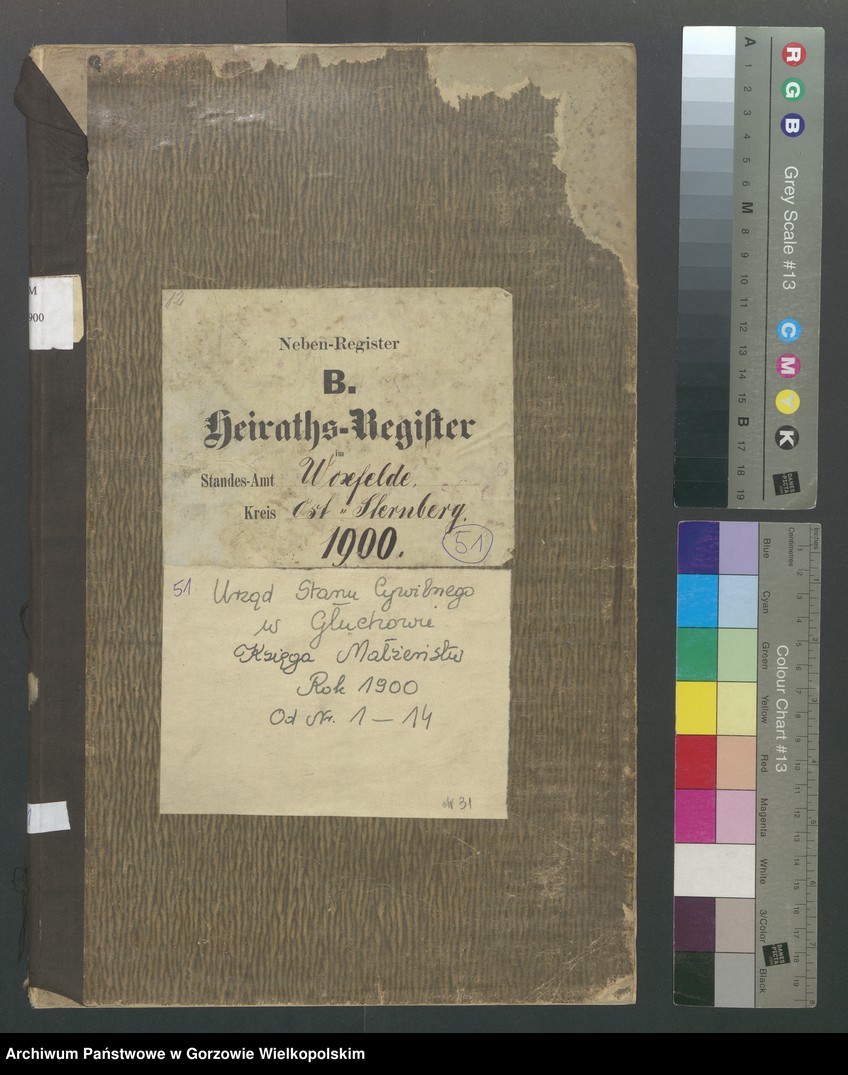 12
Neben-Register
B.
Heiraths-Register
im
Standes-Amt Woxfelde.
Kreis Ost-Sternberg.
1900.
51
51 Urząd Stanu Cywilnego
w Głuchowi
Księga Małżeństw
Rok 1900
Od Nr. 1 — 14
31
M
900
Archiwum Państwowe w Gorzowie Wielkopolskim
A 1 2 3 4 5 6 M 8 9 10 11 12 13 14 15 B 17 18 19
R G B
Grey Scale #13
C M Y K
DANES
PICTA
Blue
Cyan
Green
Yellow
Red
Magenta
White
3/Color
Black
Colour Chart #13
Centimetres
Inches
DANES
PICTA